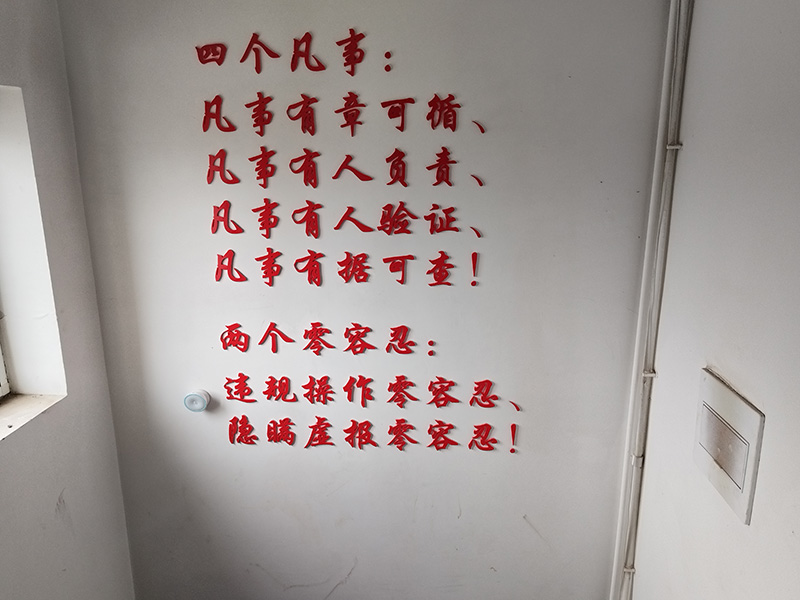 四个凡事：
凡事有章可循、
凡事有人负责、
凡事有人验证、
凡事有据可查！
两个零容忍：
违规操作零容忍、
隐瞒虚报零容忍！